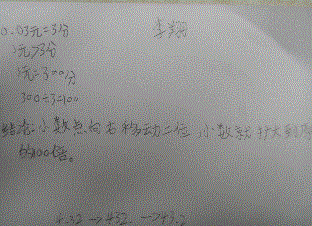 0.03元=3分
李翔
3元>3分
3元=300分
300÷3=100
结论:小数点向右移动二位,小数就扩大到原
的100倍。
4.32→432